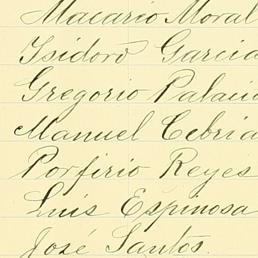 Macario Moral
Isidoro Garcia
Gregorio Palacio
Manuel Cebria
Porfirio Reyes
Luis Espinosa
José Santos.